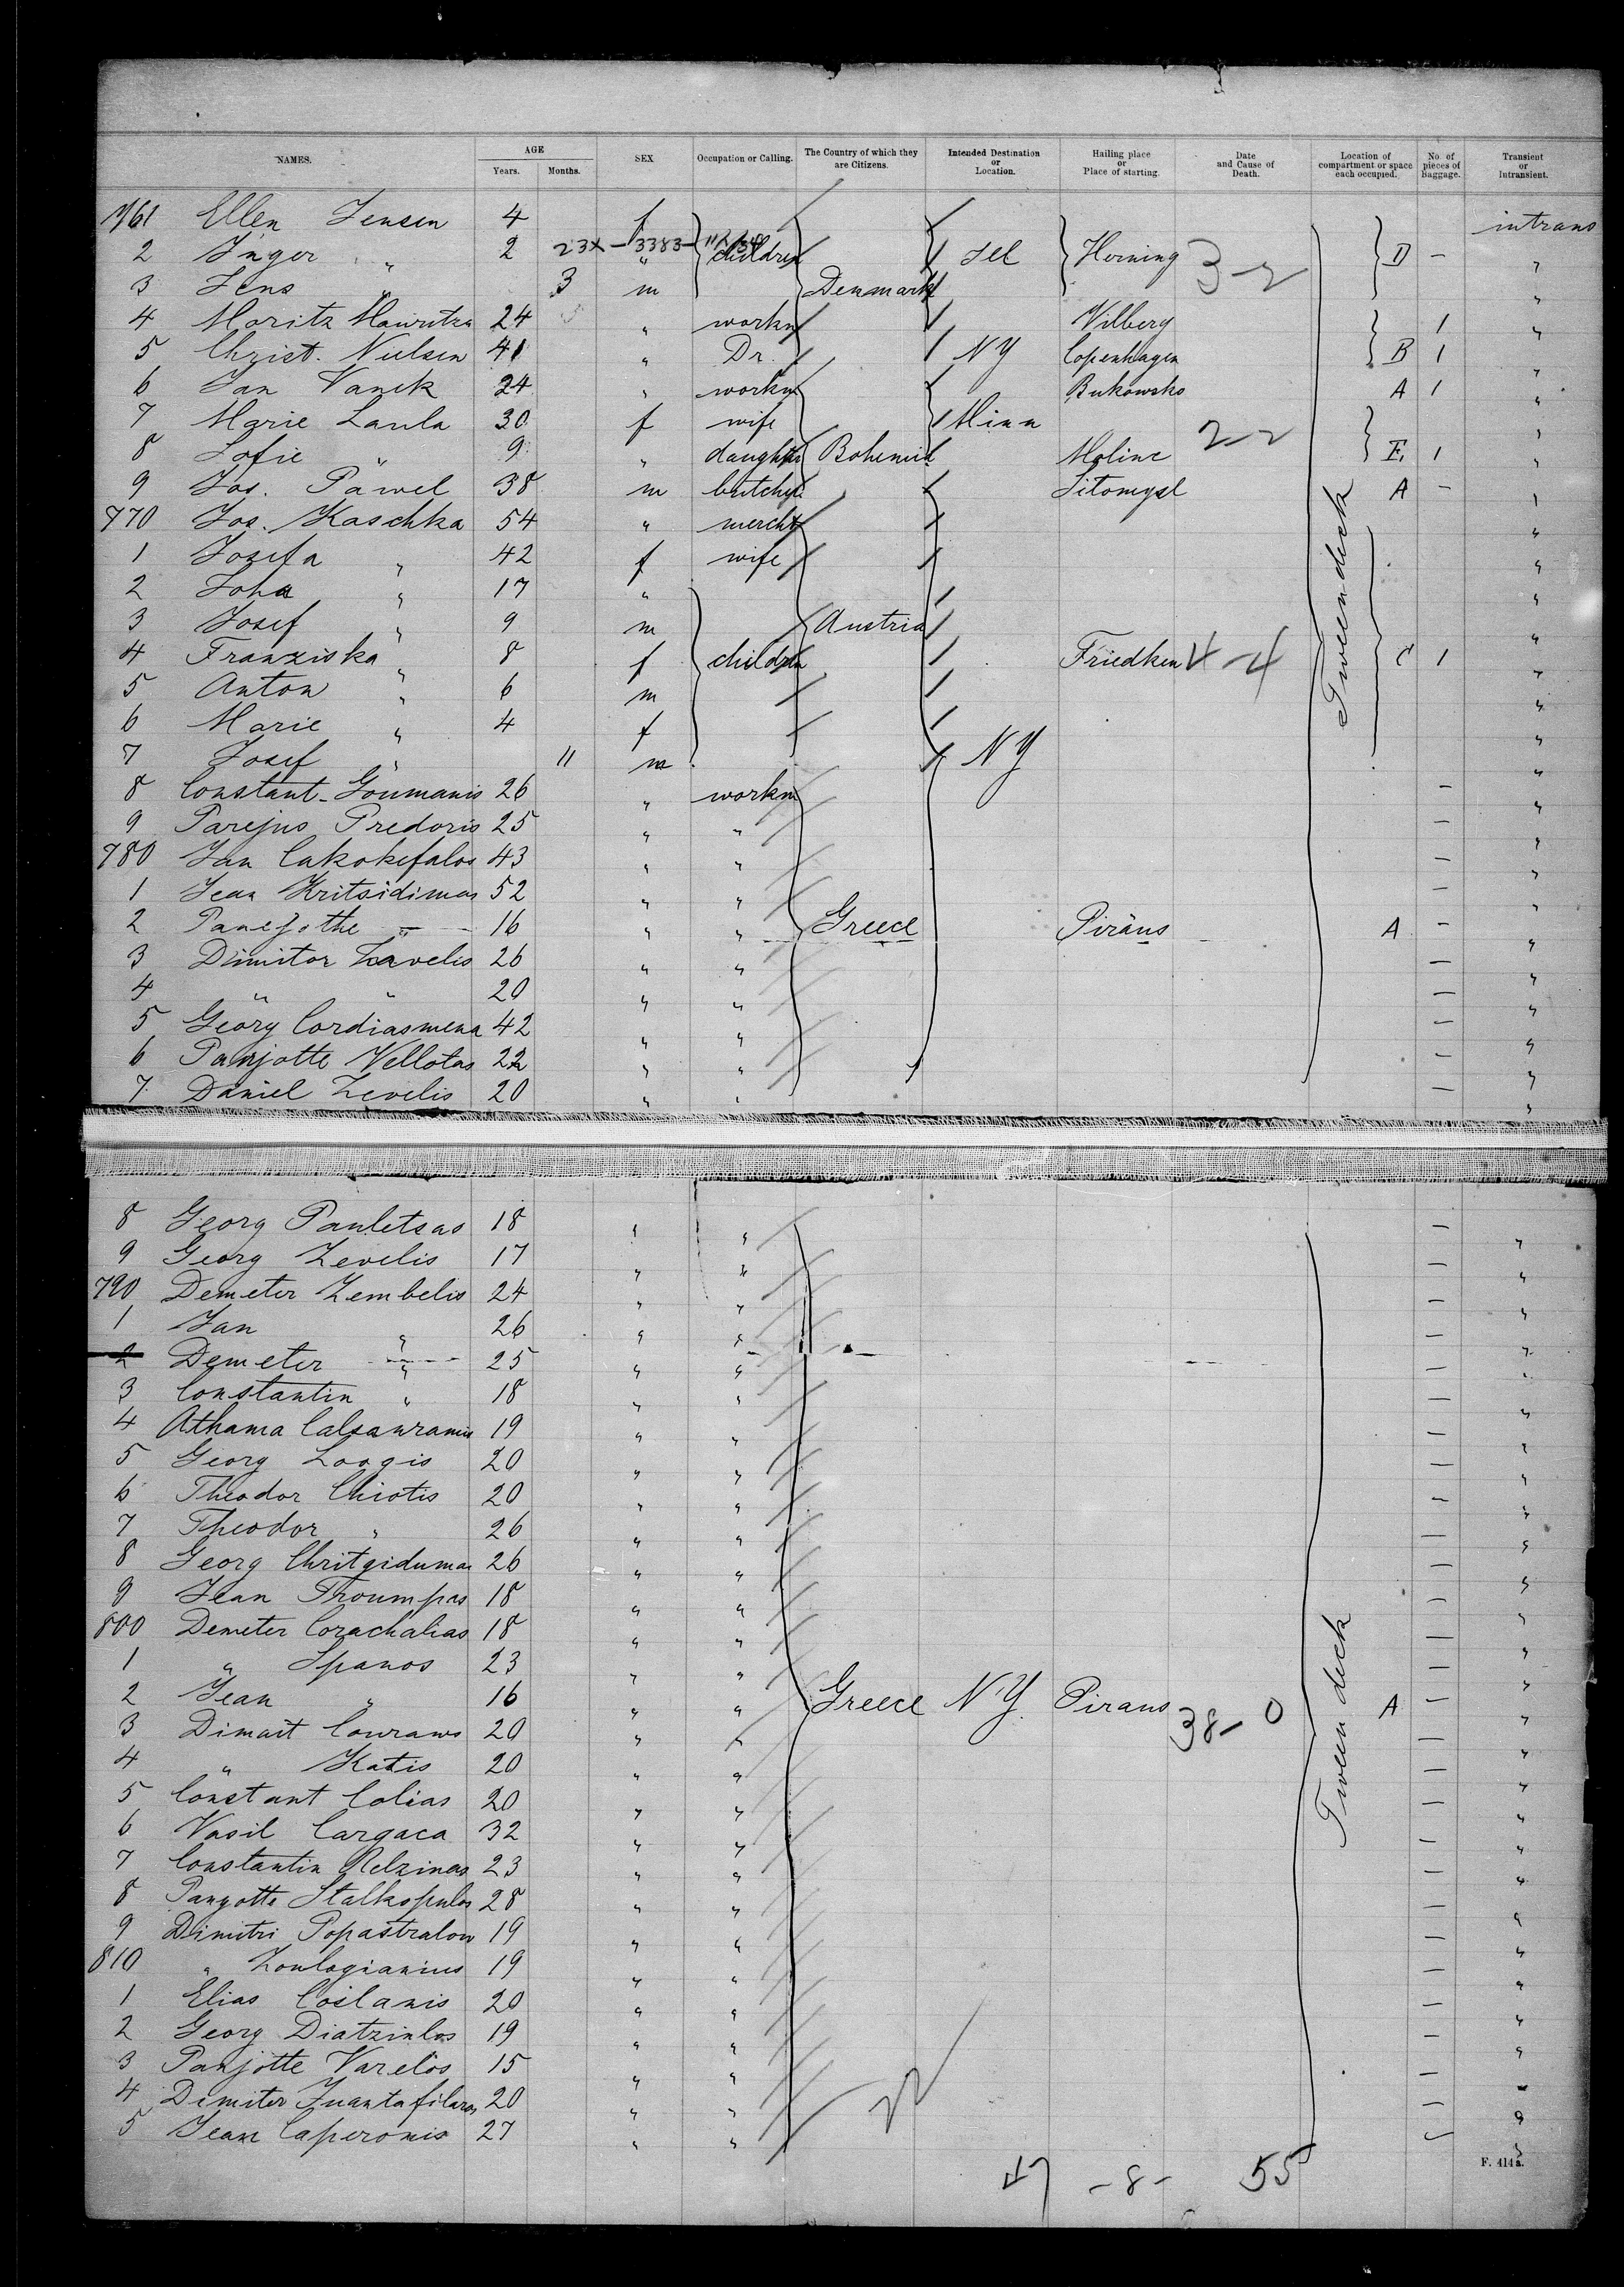 NAMES. AGE Years. Months. SEX Occupation or Calling. The Country of which they are Citizens. Intended Destination or Location. Hailing place or Place of starting. Date and Cause of Death. Location of compartment or space each occupied. No. of pieces of Baggage. Transient or Intransient.
761 Ellen Jensen 4 f intrans
2 Inger " 2 23X-3383- " children Ill Herning 3-2 D - "
3 Jens " 3 m Denmark "
4 Moritz 24 " workm Vilberg 1 "
5 Christ. Nielsen 41 " Dr. NY Copenhagen B 1 "
6 Jan Vanek 24 " workm Bukowsko A 1 "
7 Marie Laula 30 f wife Minn 2-2 "
8 Sofie " 9 " daughter Bohemia Moline E 1 "
9 Jos. Pawel 38 m butcher Litomysl A - "
770 Jos. Kaschka 54 " mercht "
1 Josefa " 42 f wife "
2 Joha " 17 " "
3 Josef " 9 m Austria "
4 Franziska " 8 f children Friedken 4-4 C 1 "
5 Anton " 6 m "
6 Marie " 4 f "
7 Josef " 11 m NY "
8 Constant. Goumanis 26 " workm - "
9 Parejus Predoris 25 " " - "
780 Jan Cakokefalos 43 " " - "
1 Jean Kritsidimas 52 " " - "
2 Panejothe " 16 " " Greece Piräus A - "
3 Dimitor Zavelis 26 " " - "
4 " " 20 " " - "
5 Georg Cordiasmena 42 " " - "
6 Panjotte Vellotas 22 " " - "
7 Daniel Zevelis 20 " " - "
Tween deck
8 Georg Pauletsas 18 " " - "
9 Georg Zevelis 17 " " - "
790 Demeter Zembelis 24 " " - "
1 Jan " 26 " " - "
2 Demeter " 25 " " - "
3 Constantin " 18 " " - "
4 Athama Calsawramis 19 " " - "
5 Georg Loogis 20 " " - "
6 Theodor Chiotis 20 " " - "
7 Theodor " 26 " " - "
8 Georg Chritgidumas 26 " " - "
9 Jean Troumpas 18 " " - "
800 Demeter Corachalias 18 " " - "
1 " Spanos 23 " " - "
2 Jean " 16 " " Greece N.Y. Piraus A - "
3 Dimait Couraws 20 " " 38-0 - "
4 " Katis 20 " " - "
5 Constant Colias 20 " " - "
6 Vasil Cargaca 32 " " - "
7 Constantin Relzinas 23 " " - "
8 Pangotte Stalkopulos 28 " " - "
9 Dimitri Popastralow 19 " " - "
810 " Zoulogianius 19 " " - "
1 Elias Coilanis 20 " " - "
2 Georg Diatzinlos 19 " " - "
3 Panjotte Varelos 15 " " - "
4 Dimiter Juantafilaros 20 " " - "
5 Jean Caperonis 27 " " - "
Tween deck
47 -8- 55
F. 414a.